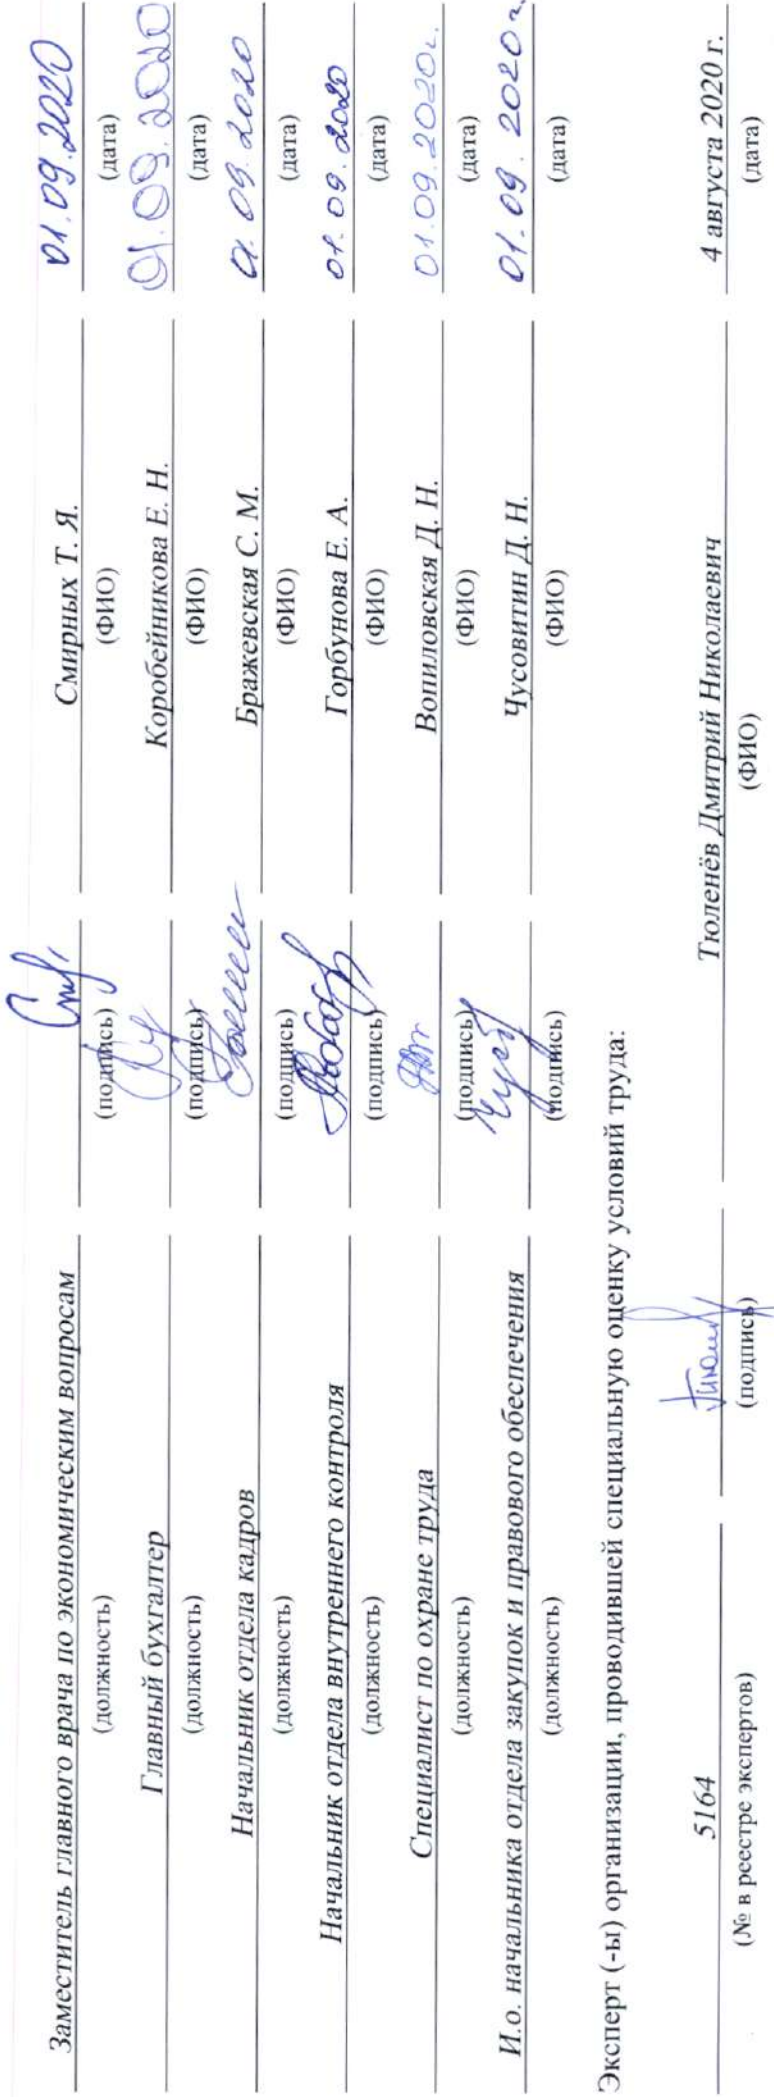 Заместитель главного врача по экономическим вопросам Смирных Т. Я. 01.09.2020
(должность) (подпись) (ФИО) (дата)
Главный бухгалтер Коробейникова Е. Н. 01.09.2020
(должность) (подпись) (ФИО) (дата)
Начальник отдела кадров Бражевская С. М. 01.09.2020
(должность) (подпись) (ФИО) (дата)
Начальник отдела внутреннего контроля Горбунова Е. А. 01.09.2020
(должность) (подпись) (ФИО) (дата)
Специалист по охране труда Вопиловская Д. Н. 01.09.2020г.
(должность) (подпись) (ФИО) (дата)
И.о. начальника отдела закупок и правового обеспечения Чусовитин Д. Н. 01.09.2020г
(должность) (подпись) (ФИО) (дата)
Эксперт (-ы) организации, проводившей специальную оценку условий труда:
5164 Тюленёв Дмитрий Николаевич 4 августа 2020 г.
(№ в реестре экспертов) (подпись) (ФИО) (дата)